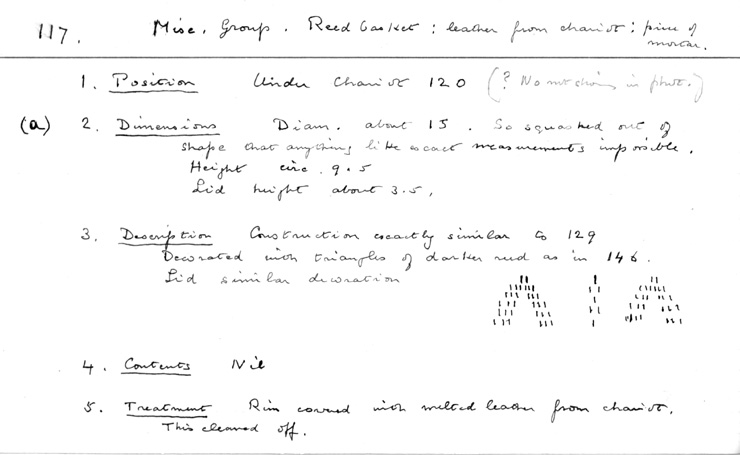 117. Misc. Group. Reed basket ; leather from chariot ; piece of
mortar.
1. Position Under Chariot 120 (? No not shown in phot.)
(a) 2. Dimensions Diam. about 15. So squashed out of
shape that anything like exact measurements impossible.
Height circ. 9.5
Lid height about 3.5,
3. Description Construction exactly similar to 129
Decorated with triangles of darker reed as in 146.
Lid similar decoration
4. Contents Nil
5. Treatment Rim covered with melted leather from chariot.
This cleaned off.